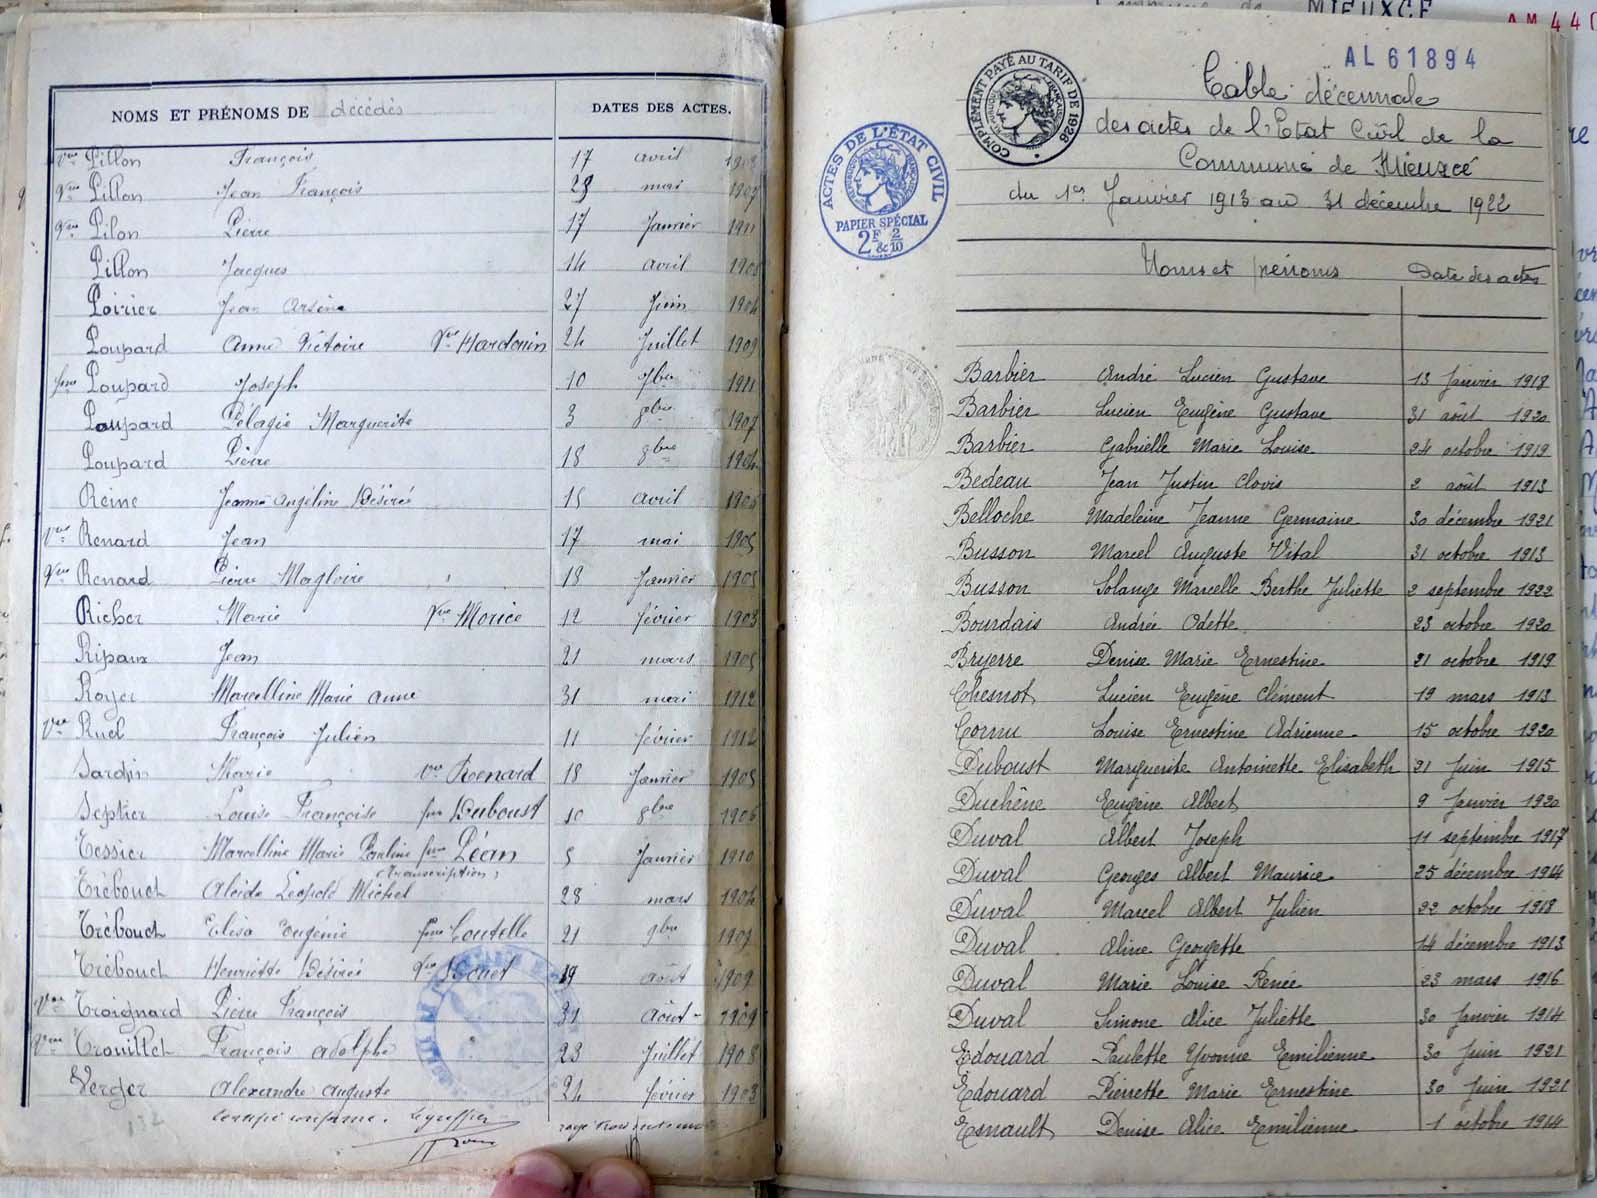 NOMS ET PRÉNOMS DE décédés DATES DES ACTES.
Pillon François 17 avril
Vve Pillon Jean François mai 1907
Pilon Pierre 17 Janvier 1911
Pillon Jacques 14 avril
Poirier Jean Arsène 27 Juin 1904
Poupard Anne Victoire Vve Hardouin 24 Juillet 1909
fme Poupard Joseph 10 7bre 1911
Poupard Pélagie Marguerite 3 8bre 1907
Poupard Pierre 18 8bre 1904
Reine Jeanne Angéline Désirée 15 avril
Vve Renard Jean 17 mai 1905
Vve Renard Pierre Magloire 18 Janvier 1905
Richer Marie Vve Morice 12 février 1903
Ripaux Jean 21 mars 1905
Royer Marcelline Marie Anne 31 mai 1912
Vve Ruel François Julien 11 février 1912
Sardin Marie Vve Renard 18 Janvier 1905
Septier Louise Françoise fme Duboust 10 8bre 1906
Tessier Marcelline Marie Pauline fme Péan 5 Janvier 1910
(transcription)
Trébouet Alcide Léopold Michel 28 mars 1904
Trébouet Elisa Eugénie fme Coutelle 21 9bre 1907
Trébouet Henriette Désirée Vve 19 août 1909
Vve Troignard Pierre François 31 Août 1909
Trouillet François Adolphe 23 Juillet 1908
Verger Alexandre Auguste 24 février 1903
Certifié conforme. Le greffier
132
MIEUXCÉ
AL 61894
COMPLÉMENT PAYÉ AU TARIF DE 1926
ACTES DE L'ÉTAT CIVIL
PAPIER SPÉCIAL
2F & 2/10
Table décennale
des actes de l'Etat Civil de la
Commune de Mieuxcé
du 1er Janvier 1913 au 31 décembre 1922
Noms et prénoms Date des actes
Barbier André Lucien Gustave 13 Janvier 1918
Barbier Lucien Eugène Gustave 31 août 1920
Barbier Gabrielle Marie Louise 24 octobre 1919
Bedeau Jean Justin Clovis 2 août 1913
Belloche Madeleine Jeanne Germaine 30 décembre 1921
Busson Marcel Auguste Vital 31 octobre 1913
Busson Solange Marcelle Berthe Juliette 2 septembre 1922
Bourdais Andrée Odette 23 octobre 1920
Bryerre Denise Marie Ernestine 21 octobre 1919
Chesnot Lucien Eugène Clément 19 mars 1913
Cornu Louise Ernestine Adrienne 15 octobre 1920
Duboust Marguerite Antoinette Elisabeth 21 Juin 1915
Duchêne Eugène Albert 9 Janvier 1920
Duval Albert Joseph 11 septembre 1917
Duval Georges Albert Maurice 25 décembre 1914
Duval Marcel Albert Julien 22 octobre 1918
Duval Aline Georgette 14 décembre 1913
Duval Marie Louise Renée 23 mars 1916
Duval Simone Alice Juliette 30 Janvier 1914
Edouard Paulette Yvonne Emilienne 30 Juin 1921
Edouard Pierrette Marie Ernestine 30 Juin 1921
Esnault Denise Alice Emilienne 1 octobre 1914